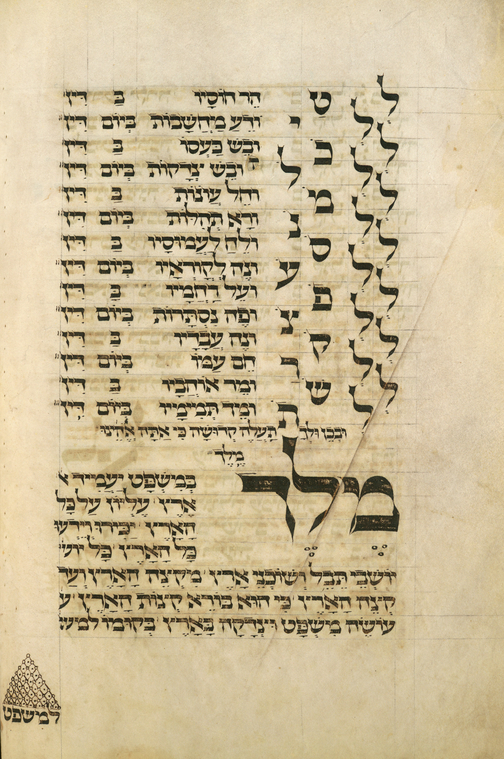 ל ט הר חוסיו ב דין
ל י ודע מחשבות ביום דין
ל כ ובש כעסו ב דין
ל ל ובש צדקות ביום דין
ל מ וחל עונות ב דין
ל נ ורא תהלות ביום דין
ל ס ולח לעמוסיו ב דין
ל ע ונה לקוראיו ביום דין
ל פ ועל רחמיו ב דין
ל צ ופה נסתרות ביום דין
ל ק ונה עבדיו ב דין
ל ר חם עמו ביום דין
ל ש ומר אוהביו ב דין
ל ת ומך תמימיו ביום דין
ובכן ולך תעלה קדושה כי אתה אלהינו
מלך
מלך במשפט יעמיד א
ארץ עליו על כל
הארץ
כל הארץ כל יוש
יושבי תבל ושוכני ארץ הארץ ועד
קונה הארץ כי הוא בורא קצות הארץ ע
עושה משפט וצדקה בארץ בקומו למש
למשפט